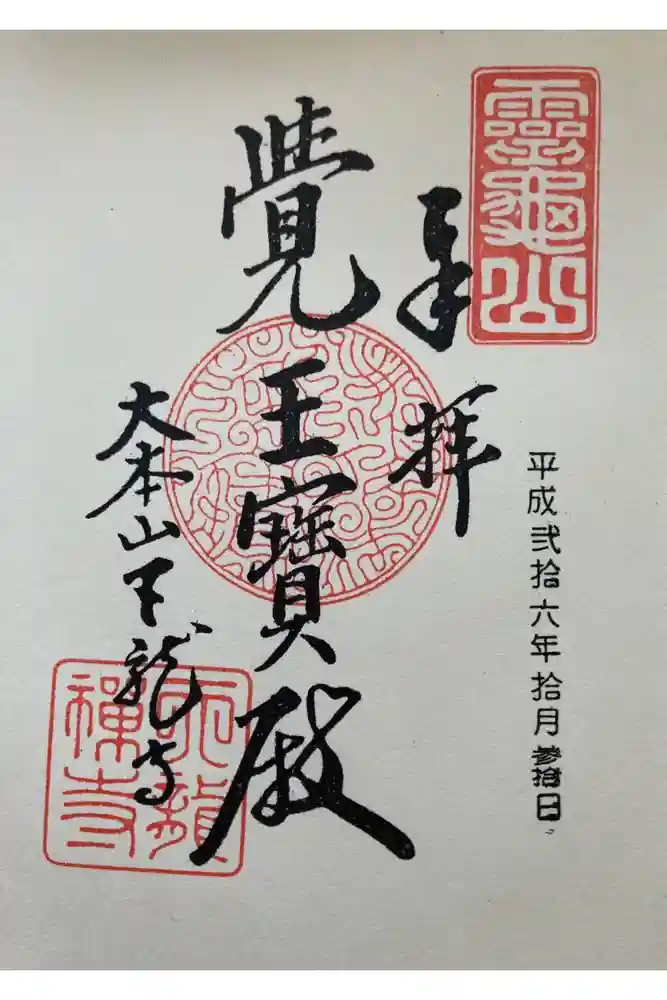 靈龜山
奉拝
平成弐拾六年拾月参拾日
覺王寶殿
大本山天龍寺
天龍
禅寺